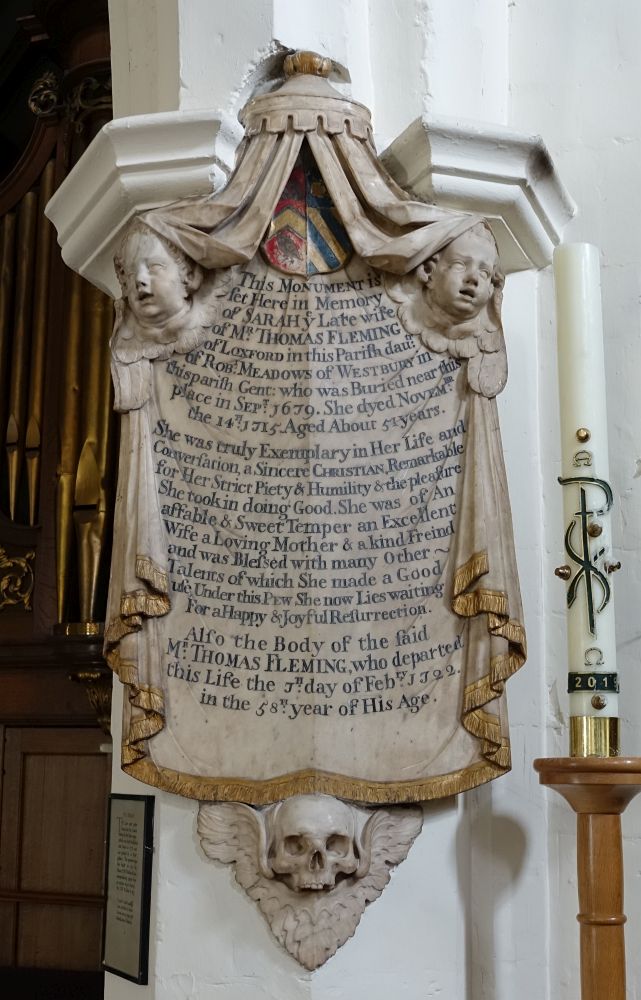 This MONUMENT is
ſet Here in Memory
of SARAH yᵉ Late wife
of Mʳ. THOMAS FLEMING
of LOXFORD in this Pariſh dauʳ.
of Robᵗ. MEADOWS of WESTBURY in
this pariſh Gent: who was Buried near this
place in Sepᵗ. 1679. She dyed Novemʳ.
the 14ᵗʰ. 1715. Aged About 51 years.
She was truly Exemplary in Her Life and
Converſation, a Sincere CHRISTIAN, Remarkable
for Her Strict Piety & Humility & the pleaſure
She took in doing Good. She was of An
affable & Sweet Temper an Excellent
Wife a Loving Mother & a kind Freind
and was Bleſsed with many Other ~
Talents of which She made a Good
uſe, Under this Pew She now Lies waiting
For a Happy & Joyful Reſurrection.
Alſo the Body of the ſaid
Mʳ. THOMAS FLEMING, who departed
this Life the 7ᵗʰ day of Febʳʸ. 1722.
in the 58ᵗʰ. year of His Age.
Ω
2019